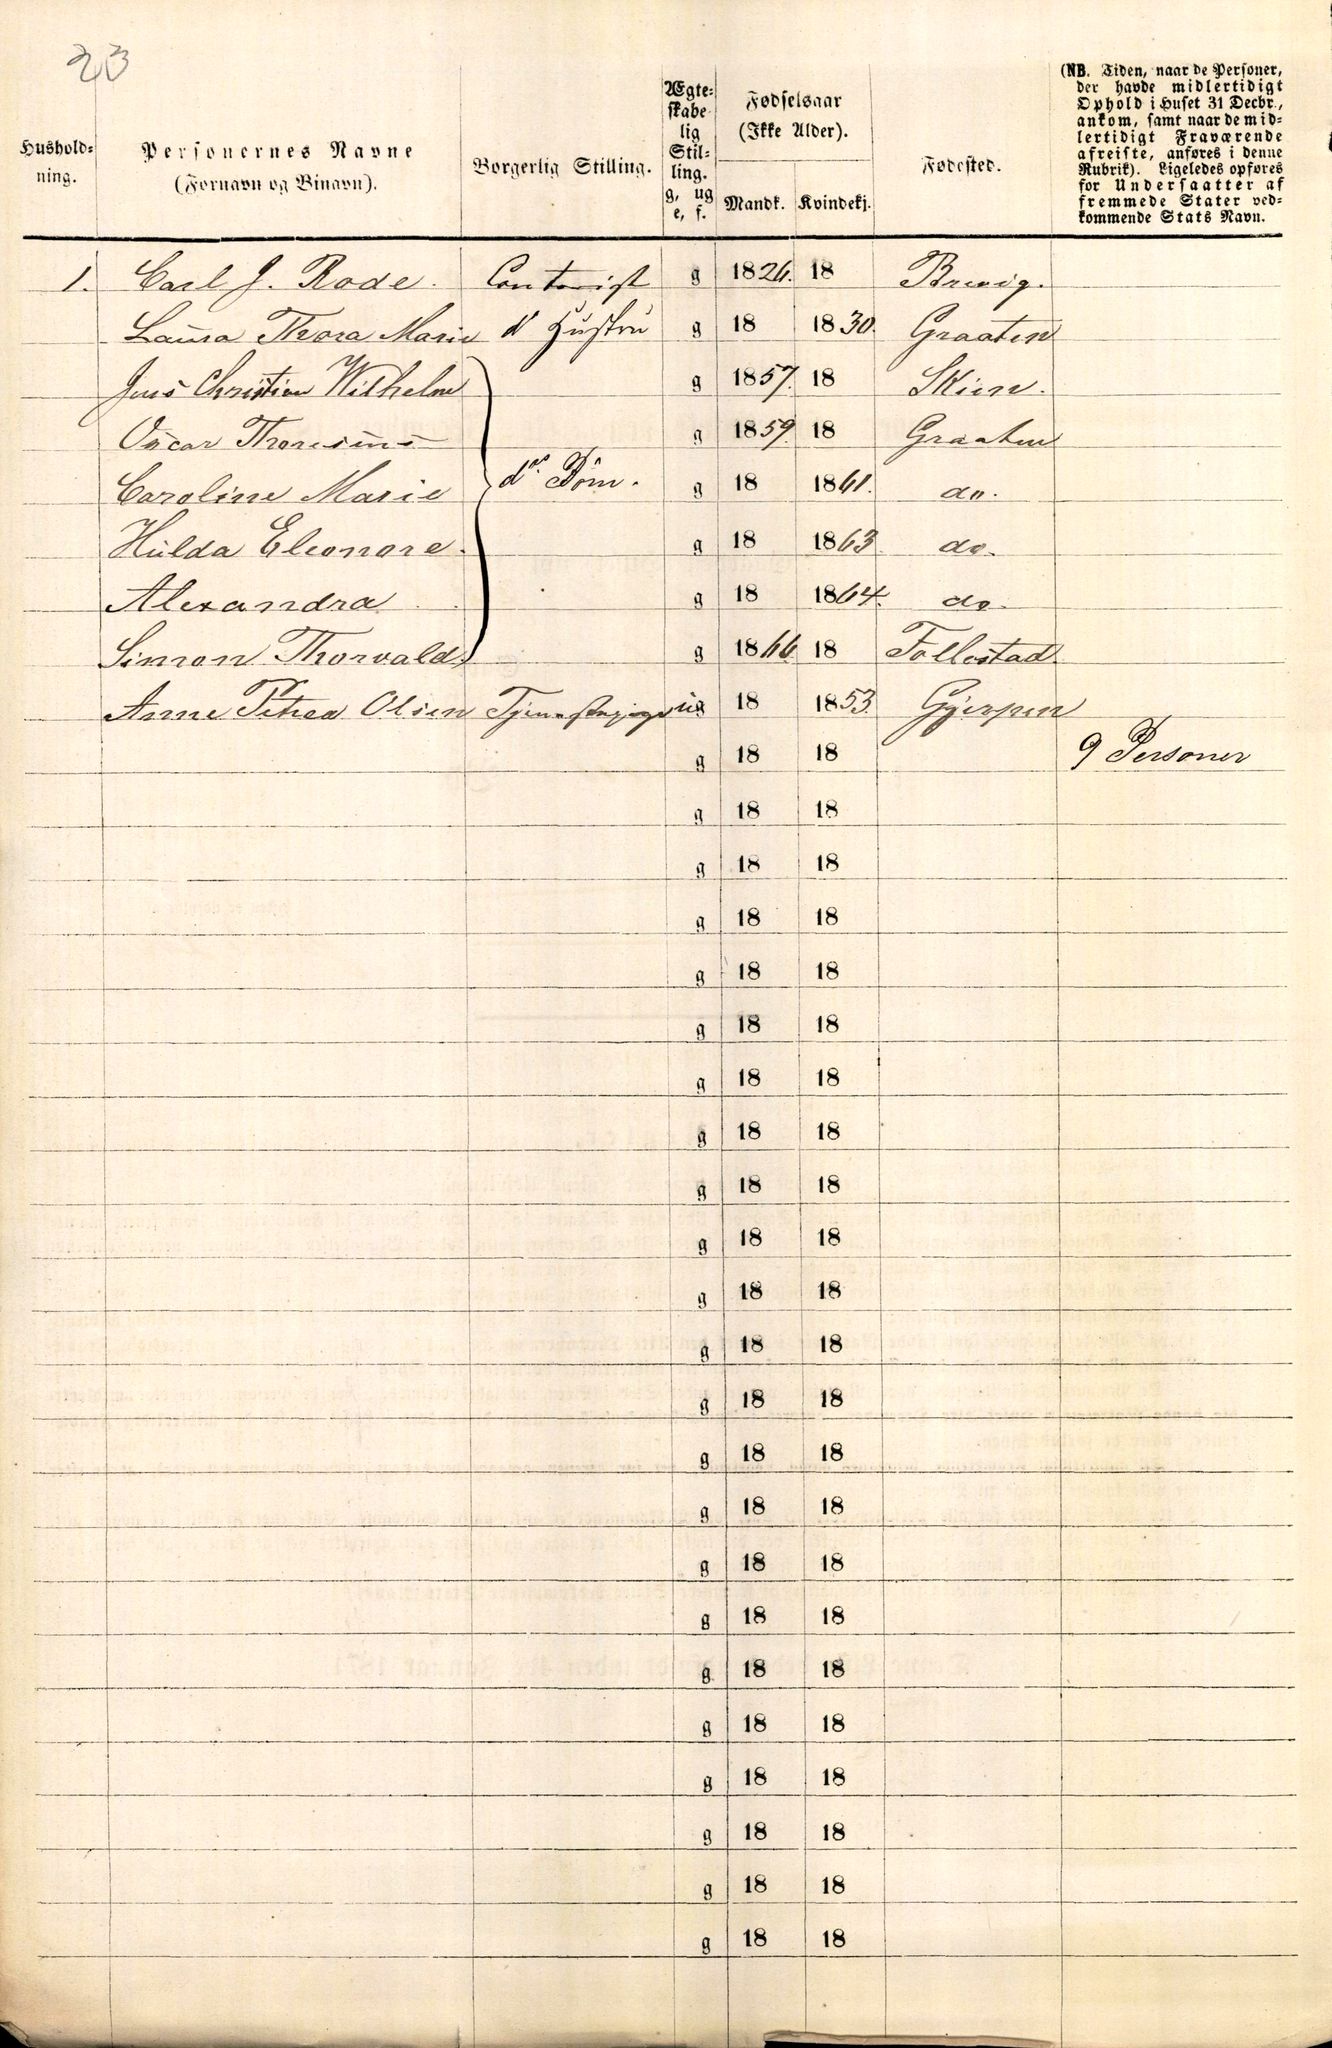 23
Hushold-
ning.
Personernes Navne
(Fornavn og Binavn).
Borgerlig Stilling.
Ægte-
skabe-
lig
Stil-
ling.
g, ug
e, f.
Fødselsaar
(Ikke Alder).
Mandk. Kvindekj.
Fødested.
(NB. Tiden, naar de Personer,
der havde midlertidigt
Ophold i Huset 31 Decbr.,
ankom, samt naar de mid-
lertidigt Fraværende
afreiste, anføres i denne
Rubrik). Ligeledes opføres
for Undersaatter af
fremmede Stater ved-
kommende Stats Navn.
1. Carl J. Rode. Contorist g 1826. 18 Brevig.
Laura Thora Marie d Hustru g 18 1830. Graaten
Jens Christian Wilhelm g 1857. 18 Skien.
Oscar Theresius g 1859. 18 Graaten
Caroline Marie ds. Børn. g 18 1861. do.
Hulda Eleonore. g 18 1863 do.
Alexandra g 18 1864. do.
Simon Thorvald. g 1866 18 Follestad.
Anne Petrea Olsen Tjenestepige ug 18 1853. Gjerpen
g 18 18 9 Personer
g 18 18
g 18 18
g 18 18
g 18 18
g 18 18
g 18 18
g 18 18
g 18 18
g 18 18
g 18 18
g 18 18
g 18 18
g 18 18
g 18 18
g 18 18
g 18 18
g 18 18
g 18 18
g 18 18
g 18 18
g 18 18
g 18 18